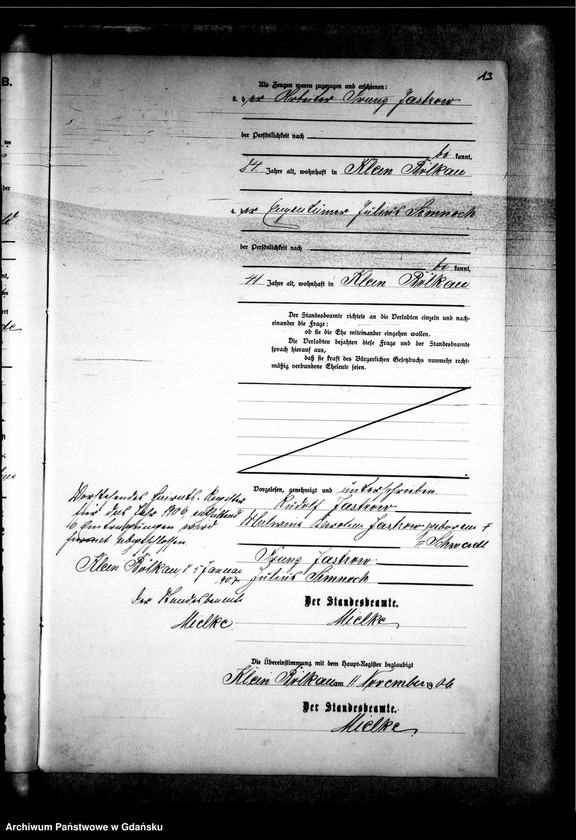 13
B.
Als Zeugen waren zugezogen und erschienen:
3. der Arbeiter Franz Jastrow
der Persönlichkeit nach
be kannt,
Jahre alt, wohnhaft in Klein Bölkau
4. der Eigentümer Julius Semnoch
der Persönlichkeit nach
be kannt,
41 Jahre alt, wohnhaft in Klein Bölkau
Der Standesbeamte richtete an die Verlobten einzeln und nach-
einander die Frage:
ob sie die Ehe miteinander eingehen wollen.
Die Verlobten bejahten diese Frage und der Standesbeamte
sprach hierauf aus,
daß sie kraft des Bürgerlichen Gesetzbuchs nunmehr recht-
mäßig verbundene Eheleute seien.
Vorgelesen, genehmigt und unterschrieben
Rudolf Jastrow
Karoline Jastrow geborene
Schwerdt
Franz Jastrow
Julius Semnoch
Der Standesbeamte.
Mielke
Vorstehendes Heirats-Register
für das Jahr 1906 enthaltend
Eintragungen wird
hiermit abgeschlossen
Klein Bölkau, Januar
1907
Der Standesbeamte
Mielke.
Die Übereinstimmung mit dem Haupt-Register beglaubigt
Klein Bölkau am 11 November 1906
Der Standesbeamte.
Mielke
Archiwum Państwowe w Gdańsku